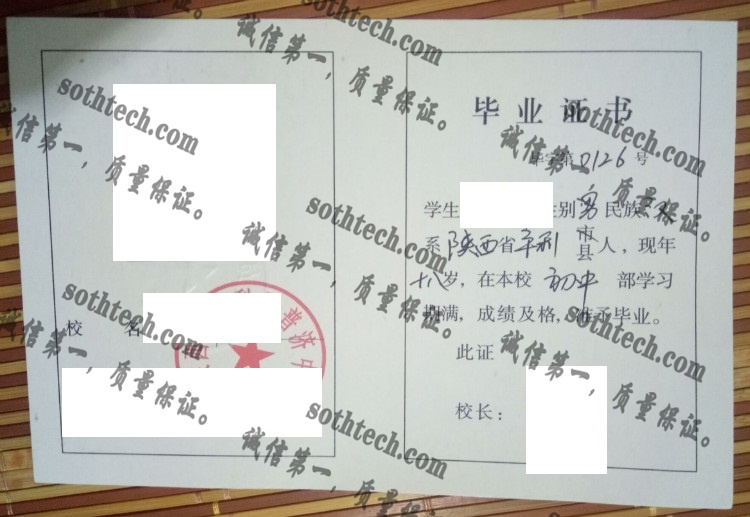 毕业证书
毕字第0126号
学生 性别男民族
系陕西省平利市县人，现年
十八岁，在本校初中部学习
期满，成绩及格，准予毕业。
此证
校长：
校 名
普济中
sothtech.com
诚信第一，质量保证。
sothtech.com
诚信第一，质量保证。
sothtech.com
诚信第一，质量保证。
sothtech.com
诚信第一，质量保证。
sothtech.com
诚信第一，质量保证。
sothtech.com
诚信第一，质量保证。
sothtech.com
诚信第一，质量保证。